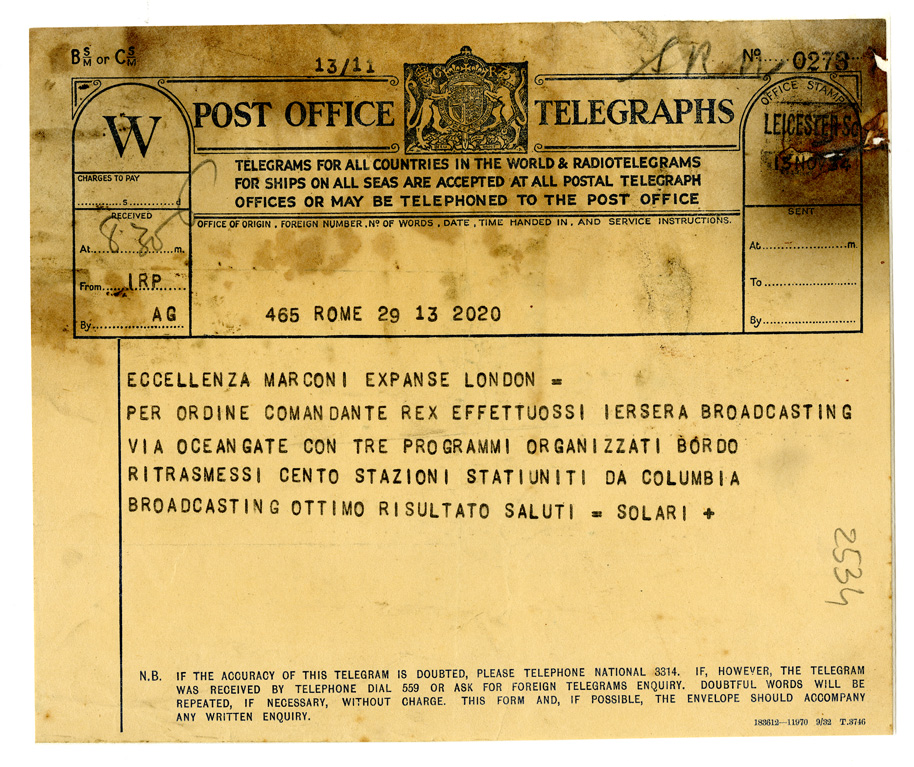 BS/M or CS/M
13/11
Nº 0273
W
POST OFFICE TELEGRAPHS
OFFICE STAMP
LEICESTER SQ
13 NO 34
TELEGRAMS FOR ALL COUNTRIES IN THE WORLD & RADIOTELEGRAMS
FOR SHIPS ON ALL SEAS ARE ACCEPTED AT ALL POSTAL TELEGRAPH
OFFICES OR MAY BE TELEPHONED TO THE POST OFFICE
CHARGES TO PAY
s d
RECEIVED
At 8.30 m.
From IRP
By AG
OFFICE OF ORIGIN, FOREIGN NUMBER, Nº OF WORDS, DATE, TIME HANDED IN, AND SERVICE INSTRUCTIONS.
SENT
At m.
To
By
465 ROME 29 13 2020
ECCELLENZA MARCONI EXPANSE LONDON =
PER ORDINE COMANDANTE REX EFFETTUOSSI IERSERA BROADCASTING
VIA OCEANGATE CON TRE PROGRAMMI ORGANIZZATI BORDO
RITRASMESSI CENTO STAZIONI STATIUNITI DA COLUMBIA
BROADCASTING OTTIMO RISULTATO SALUTI = SOLARI +
2534
N.B. IF THE ACCURACY OF THIS TELEGRAM IS DOUBTED, PLEASE TELEPHONE NATIONAL 3314. IF, HOWEVER, THE TELEGRAM
WAS RECEIVED BY TELEPHONE DIAL 559 OR ASK FOR FOREIGN TELEGRAMS ENQUIRY. DOUBTFUL WORDS WILL BE
REPEATED, IF NECESSARY, WITHOUT CHARGE. THIS FORM AND, IF POSSIBLE, THE ENVELOPE SHOULD ACCOMPANY
ANY WRITTEN ENQUIRY.
183612—11970 9/32 T.3746